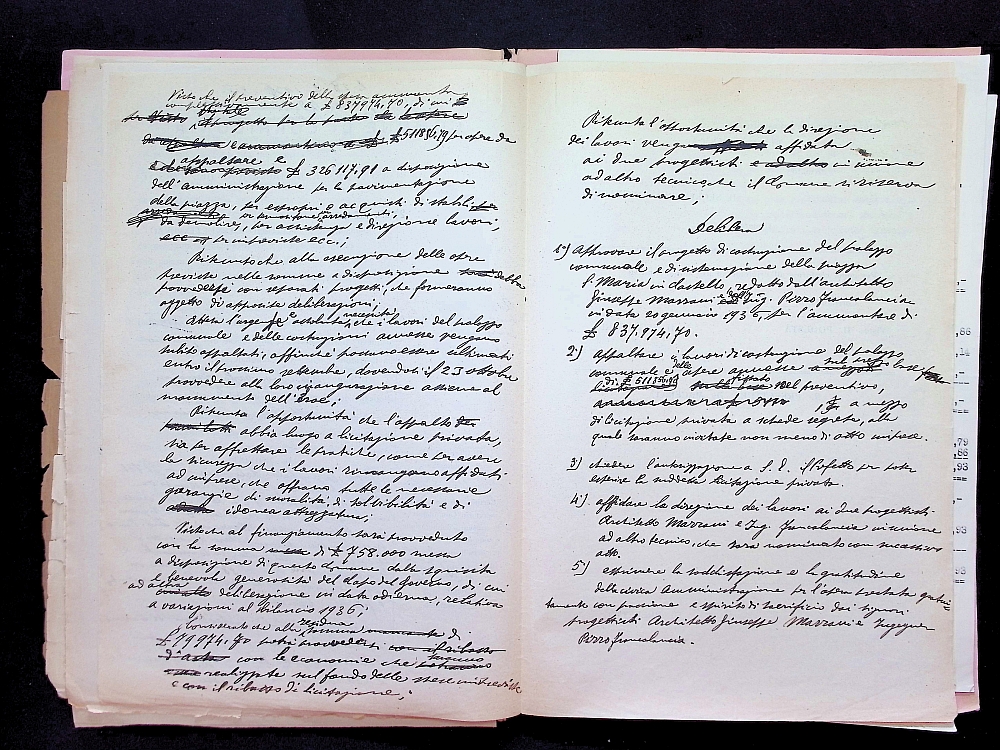 Visto che il preventivo della spesa ammonta
complessivamente a £ 837974,70, di cui
£ 511856,79 per opere da
appaltare e
£ 326117,91 a disposizione
dell'amministrazione per la pavimentazione
della piazza, per espropri e acquisti di stabili
da demolire, per assistenza e direzione lavori,
per imprevisti ecc.;
Ritenuto che alla esecuzione delle opere
previste nelle somme a disposizione debba
provvedersi con separati progetti, che formeranno
oggetto di apposite deliberazioni;
Attesa l'urgente e assoluta necessità che i lavori del palazzo
comunale e delle costruzioni annesse vengano
subito appaltati, affinché possano essere ultimati
entro il prossimo settembre, dovendosi il 23 ottobre
provvedere alla loro inaugurazione assieme al
monumento dell'Eroe;
Ritenuta l'opportunità che l'appalto dei
lavori abbia luogo a licitazione privata,
sia per affrettare le pratiche, come per avere
la sicurezza che i lavori rimangano affidati
ad imprese, che offrano tutte le necessarie
garanzie di moralità, di solvibilità e di
idonea attrezzatura;
Visto che al finanziamento sarà provveduto
con la somma di £ 758.000 messa
a disposizione di questo Comune dalla squisita
e benevola generosità del Capo del Governo, di cui
ad altra deliberazione in data odierna, relativa
a variazioni al bilancio 1936;
Considerato che alla residua somma di
£ 79974,70 potrà provvedersi
con le economie che saranno
realizzate sul fondo delle
e con il ribasso di licitazione;
Ritenuta l'opportunità che la direzione
dei lavori venga affidata
ai due progettisti in unione
ad altro tecnico, che il Comune si riserva
di nominare;
Delibera
1°) Approvare il progetto di costruzione del palazzo
comunale e di sistemazione della piazza
S. Maria in Castello, redatto dall'architetto
Giuseppe Marrani e dall'Ing. Porro Francalancia
in data 20 gennaio 1936, per l'ammontare di
£ 837.974,70.
2°) Appaltare i lavori di costruzione del palazzo
comunale e delle opere annesse
di £ 511856,79 previsto nel preventivo,
a mezzo
di licitazione privata a schede segrete, alla
quale saranno invitate non meno di otto imprese.
3°) chiedere l'autorizzazione a S. E. il Prefetto per poter
esperire la suddetta licitazione privata.
4°) affidare la direzione dei lavori ai due progettisti
Architetto Marrani e Ing. Francalancia in unione
ad altro tecnico, che sarà nominato con successivo
atto.
5°) esprimere la soddisfazione e la gratitudine
della civica Amministrazione per l'opera prestata gratui-
tamente con passione e spirito di sacrificio dai signori
progettisti Architetto Giuseppe Marrani e Ingegner
Porro Francalancia.